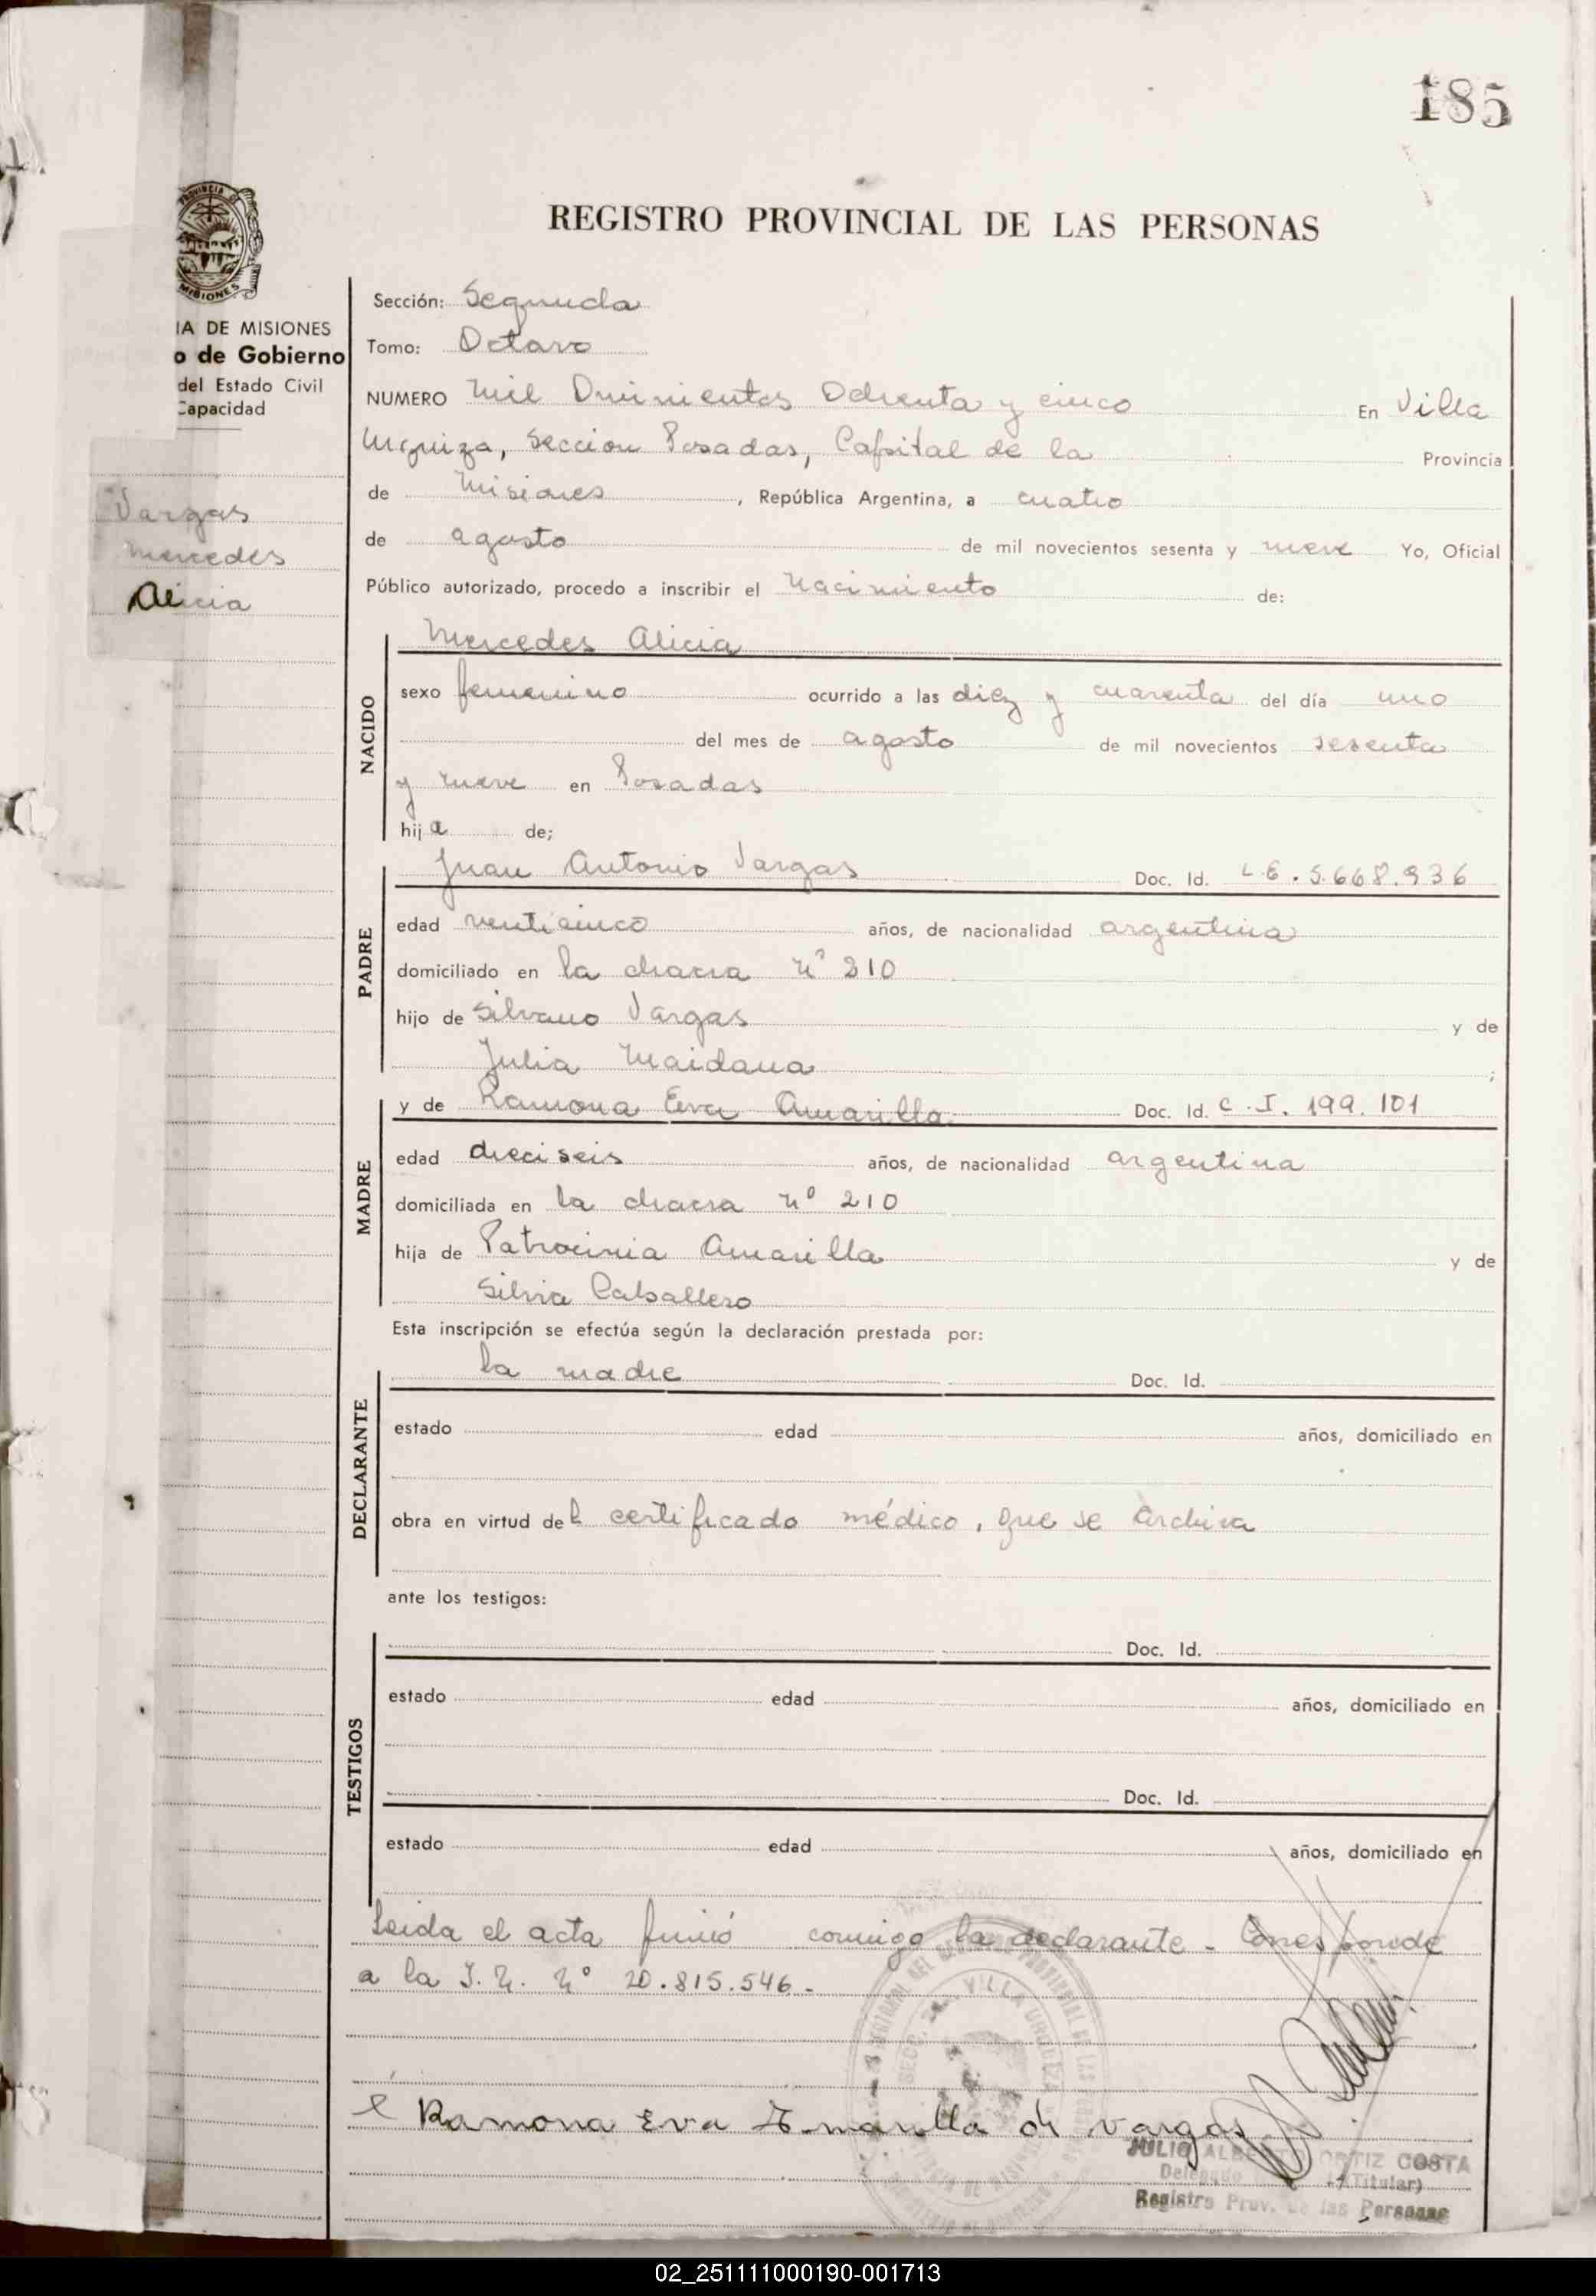 185
PROVINCIA DE
MISIONES
REGISTRO PROVINCIAL DE LAS PERSONAS
IA DE MISIONES
o de Gobierno
del Estado Civil
Capacidad
Vargas
Mercedes
Alicia
Sección: Segunda
Tomo: Octavo
NUMERO Mil Quinientos Ochenta y cinco En Villa
Urquiza, Sección Posadas, Capital de la Provincia
de Misiones, República Argentina, a cuatro
de agosto de mil novecientos sesenta y nueve Yo, Oficial
Público autorizado, procedo a inscribir el nacimiento de:
NACIDO
Mercedes Alicia
sexo femenino ocurrido a las diez y cuarenta del día uno
del mes de agosto de mil novecientos sesenta
y nueve en Posadas
hija de;
PADRE
Juan Antonio Vargas Doc. Id. L.E. 5.668.936
edad venticinco años, de nacionalidad argentina
domiciliado en la chacra nº 210
hijo de Silvano Vargas y de
Julia Maidana;
MADRE
y de Ramona Eva Amarilla Doc. Id. C.I. 199.101
edad dieciseis años, de nacionalidad argentina
domiciliada en la chacra nº 210
hija de Patrocinia Amarilla y de
Silvia Caballero
Esta inscripción se efectúa según la declaración prestada por:
DECLARANTE
la madre Doc. Id.
estado edad años, domiciliado en
obra en virtud del certificado médico, que se archiva
ante los testigos:
TESTIGOS
Doc. Id.
estado edad años, domiciliado en
Doc. Id.
estado edad años, domiciliado en
Leida el acta firmó conmigo la declarante - Corresponde
a la I. N. Nº 20.815.546 -
VILLA URQUIZA
Ramona Eva Amarilla de Vargas
JULIO ALBERTO ORTIZ COSTA
Delegado (Titular)
Registro Prov. de las Personas
02_251111000190-001713